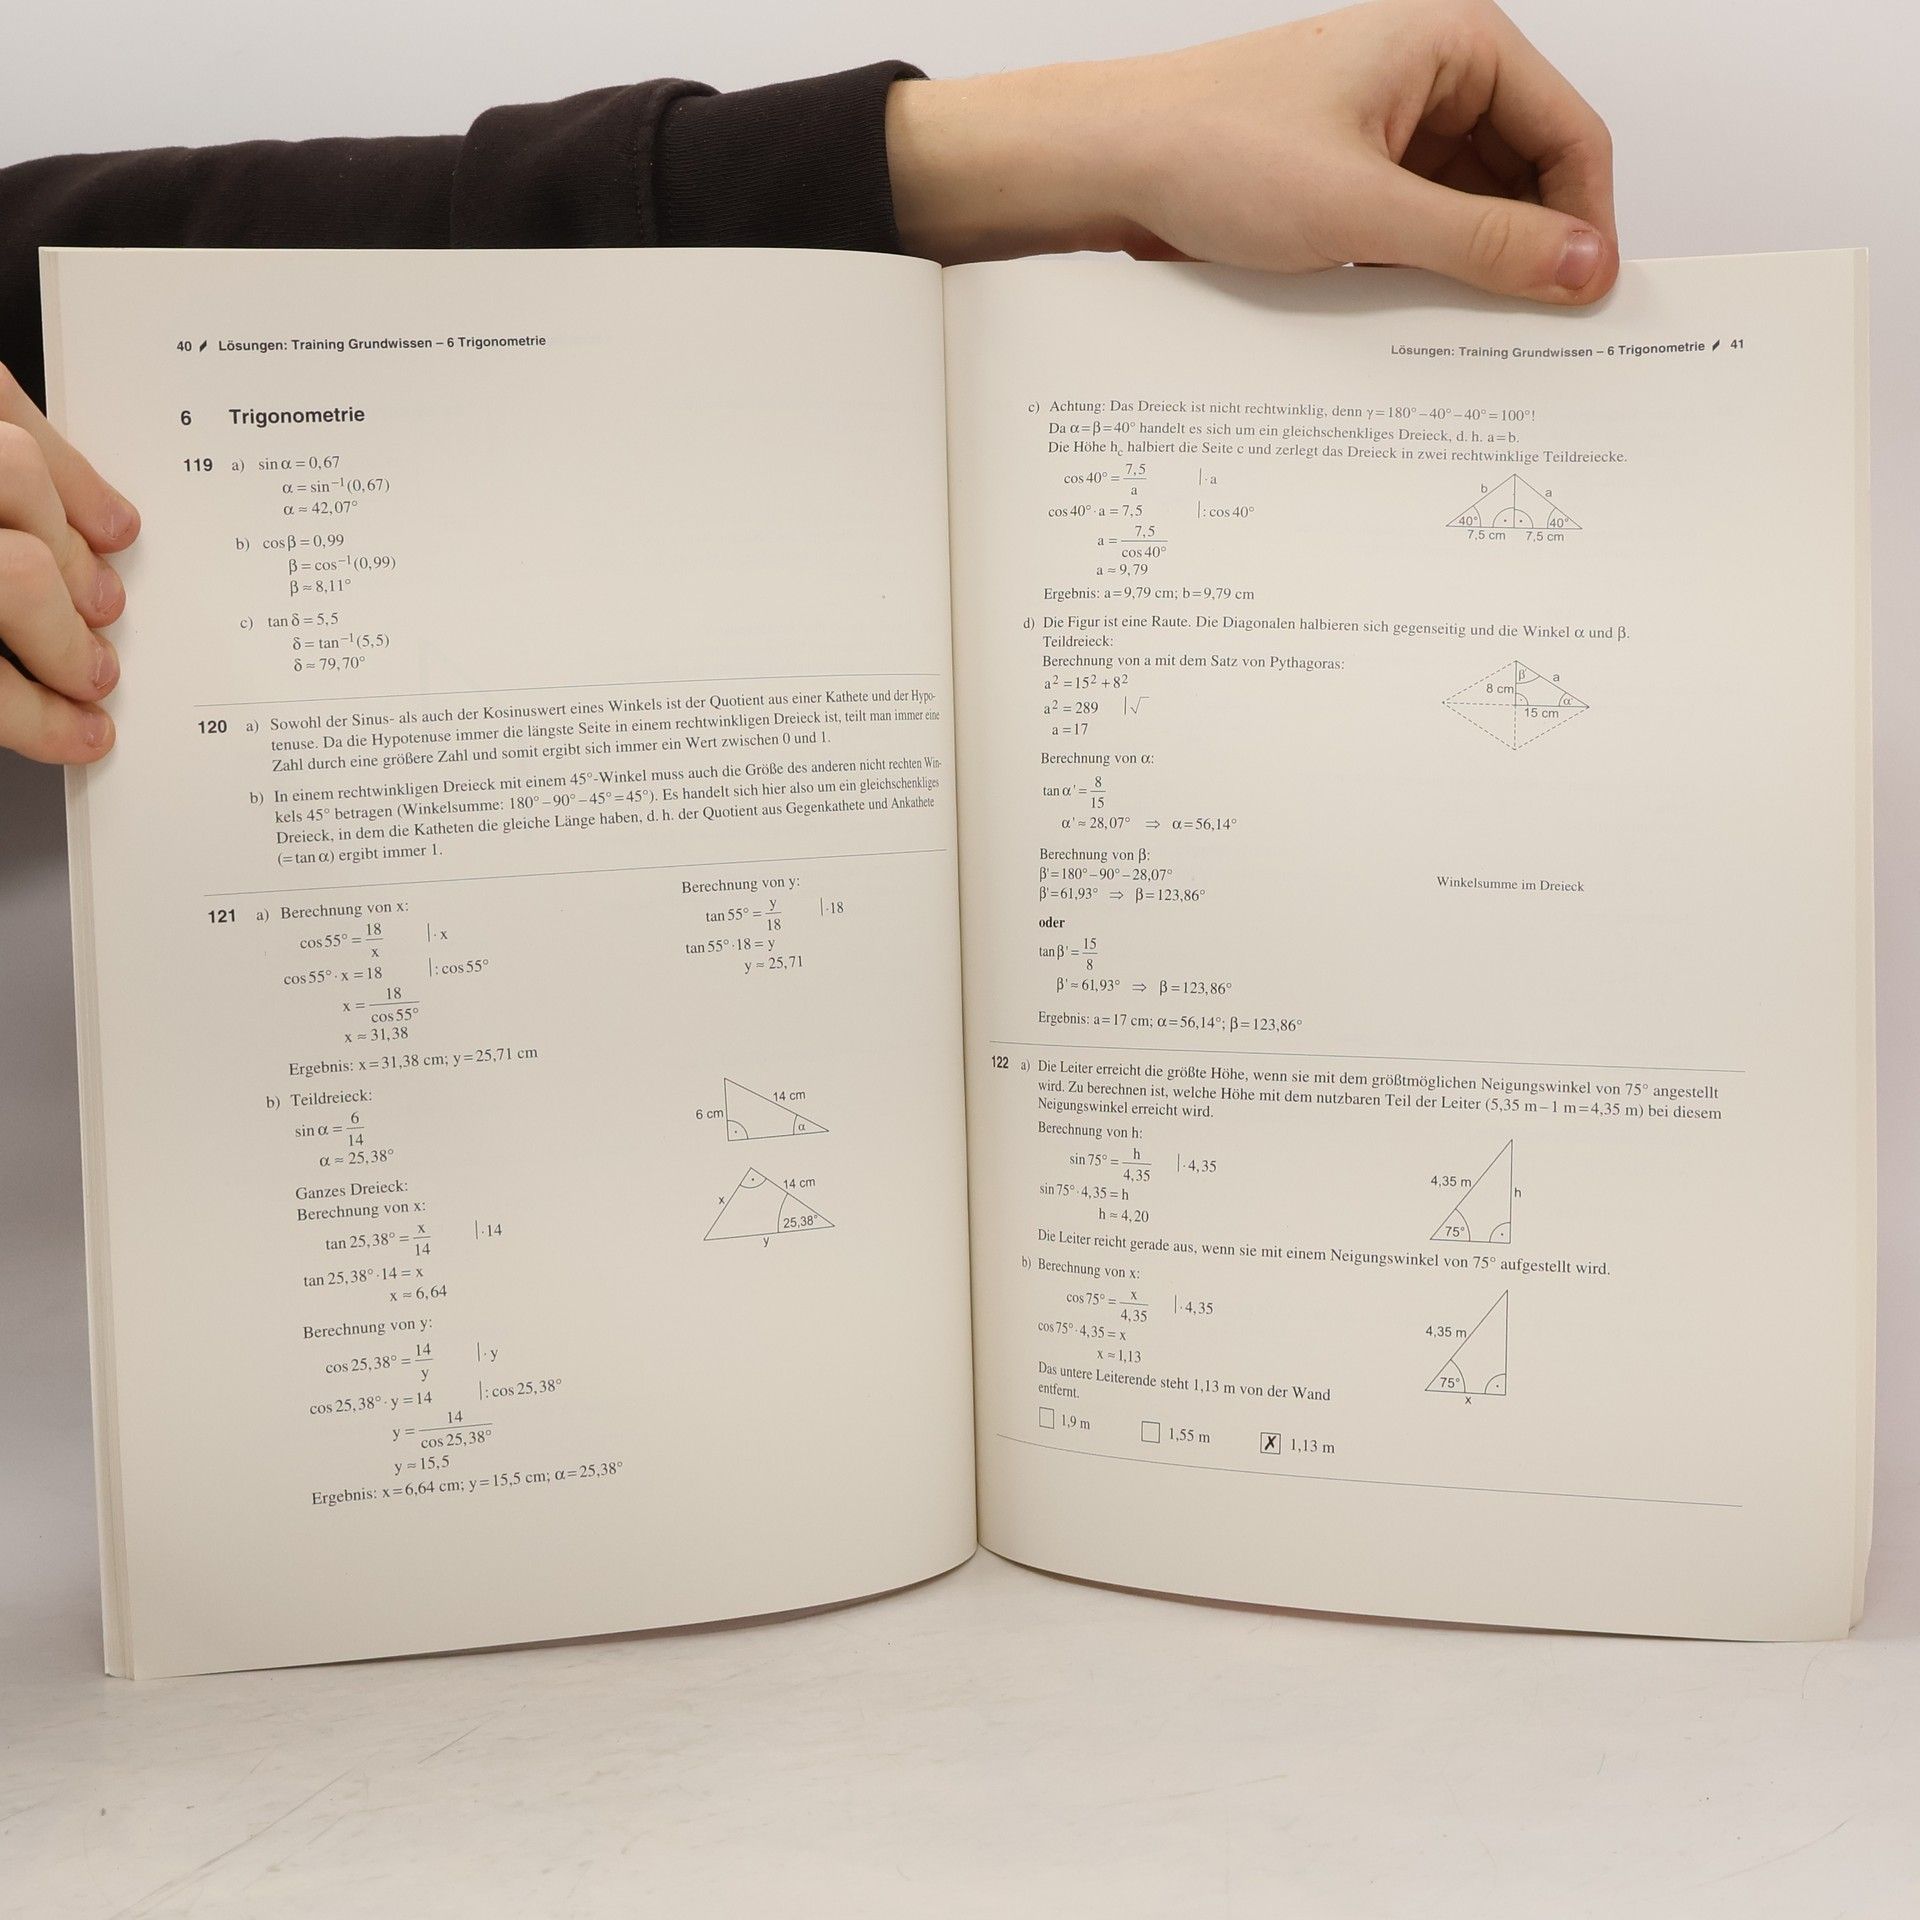 40 Lösungen: Training Grundwissen – 6 Trigonometrie
6 Trigonometrie
119 a) sin α = 0,67
α = sin⁻¹(0,67)
α ≈ 42,07°
b) cos β = 0,99
β = cos⁻¹(0,99)
β ≈ 8,11°
c) tan δ = 5,5
δ = tan⁻¹(5,5)
δ ≈ 79,70°
120 a) Sowohl der Sinus- als auch der Kosinuswert eines Winkels ist der Quotient aus einer Kathete und der Hypo-
tenuse. Da die Hypotenuse immer die längste Seite in einem rechtwinkligen Dreieck ist, teilt man immer eine
Zahl durch eine größere Zahl und somit ergibt sich immer ein Wert zwischen 0 und 1.
b) In einem rechtwinkligen Dreieck mit einem 45°-Winkel muss auch die Größe des anderen nicht rechten Win-
kels 45° betragen (Winkelsumme: 180° – 90° – 45° = 45°). Es handelt sich hier also um ein gleichschenkliges
Dreieck, in dem die Katheten die gleiche Länge haben, d. h. der Quotient aus Gegenkathete und Ankathete
(= tan α) ergibt immer 1.
121 a) Berechnung von x:
cos 55° = 18/x |· x
cos 55° · x = 18 |: cos 55°
x = 18/cos 55°
x ≈ 31,38
Berechnung von y:
tan 55° = y/18 |· 18
tan 55° · 18 = y
y ≈ 25,71
Ergebnis: x = 31,38 cm; y = 25,71 cm
b) Teildreieck:
sin α = 6/14
α ≈ 25,38°
6 cm
14 cm
α
Ganzes Dreieck:
Berechnung von x:
tan 25,38° = x/14 |· 14
tan 25,38° · 14 = x
x ≈ 6,64
x
14 cm
25,38°
y
Berechnung von y:
cos 25,38° = 14/y |· y
cos 25,38° · y = 14 |: cos 25,38°
y = 14/cos 25,38°
y ≈ 15,5
Ergebnis: x = 6,64 cm; y = 15,5 cm; α = 25,38°
Lösungen: Training Grundwissen – 6 Trigonometrie 41
c) Achtung: Das Dreieck ist nicht rechtwinklig, denn γ = 180° – 40° – 40° = 100°!
Da α = β = 40° handelt es sich um ein gleichschenkliges Dreieck, d. h. a = b.
Die Höhe h_c halbiert die Seite c und zerlegt das Dreieck in zwei rechtwinklige Teildreiecke.
cos 40° = 7,5/a |· a
cos 40° · a = 7,5 |: cos 40°
a = 7,5/cos 40°
a ≈ 9,79
b a
40° 40°
7,5 cm 7,5 cm
Ergebnis: a = 9,79 cm; b = 9,79 cm
d) Die Figur ist eine Raute. Die Diagonalen halbieren sich gegenseitig und die Winkel α und β.
Teildreieck:
Berechnung von a mit dem Satz von Pythagoras:
a² = 15² + 8²
a² = 289 |√
a = 17
β' a
8 cm α'
15 cm
Berechnung von α:
tan α' = 8/15
α' ≈ 28,07° ⇒ α = 56,14°
Berechnung von β:
β' = 180° – 90° – 28,07° Winkelsumme im Dreieck
β' = 61,93° ⇒ β = 123,86°
oder
tan β' = 15/8
β' ≈ 61,93° ⇒ β = 123,86°
Ergebnis: a = 17 cm; α = 56,14°; β = 123,86°
122 a) Die Leiter erreicht die größte Höhe, wenn sie mit dem größtmöglichen Neigungswinkel von 75° angestellt
wird. Zu berechnen ist, welche Höhe mit dem nutzbaren Teil der Leiter (5,35 m – 1 m = 4,35 m) bei diesem
Neigungswinkel erreicht wird.
Berechnung von h:
sin 75° = h/4,35 |· 4,35
sin 75° · 4,35 = h
h ≈ 4,20
4,35 m
h
75°
Die Leiter reicht gerade aus, wenn sie mit einem Neigungswinkel von 75° aufgestellt wird.
b) Berechnung von x:
cos 75° = x/4,35 |· 4,35
cos 75° · 4,35 = x
x ≈ 1,13
4,35 m
75°
x
Das untere Leiterende steht 1,13 m von der Wand
entfernt.
☐ 1,9 m ☐ 1,55 m ☒ 1,13 m